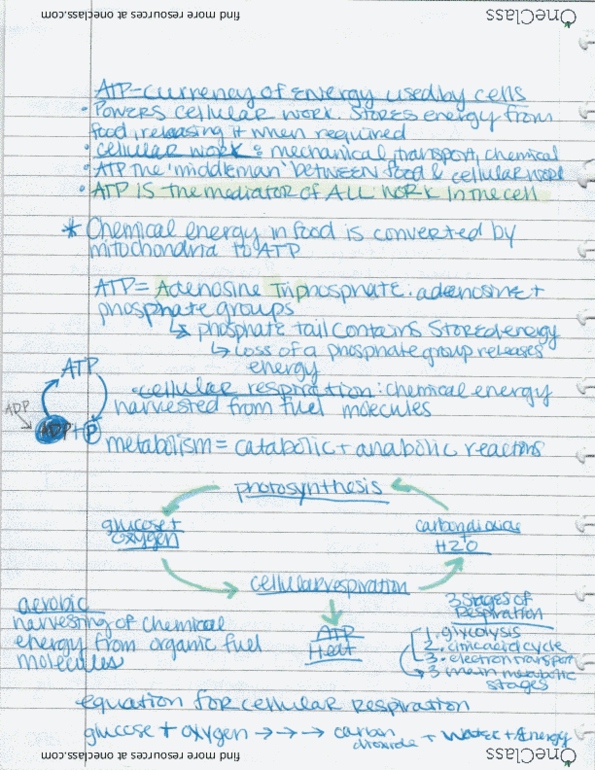 find more resources at oneclass.com
OneClass
ATP-currency of energy used by cells
• Powers cellular work. Stores energy from
food, releasing it when required
• cellular work: mechanical, transport, chemical
• ATP the 'middleman' between food & cellular work
• ATP is the mediator of ALL work in the cell
* Chemical energy in food is converted by
mitochondria to ATP
ATP= Adenosine Triphosphate: adenosine +
phosphate groups
↳ phosphate tail contains stored energy
↳ Loss of a phosphate group releases
energy
ATP
ADP
ADP + P
• cellular respiration: chemical energy
harvested from fuel molecules
metabolism = catabolic + anabolic reactions
photosynthesis
glucose +
oxygen
carbon dioxide
+
H2O
cellular respiration
ATP
Heat
aerobic
harvesting of chemical
energy from organic fuel
molecules
3 Stages of
Respiration
1. glycolysis
2. citric acid cycle
3. electron transport
→ 3 main metabolic
stages
equation for cellular respiration
glucose + oxygen → → → carbon dioxide + water + energy
find more resources at oneclass.com
OneClass